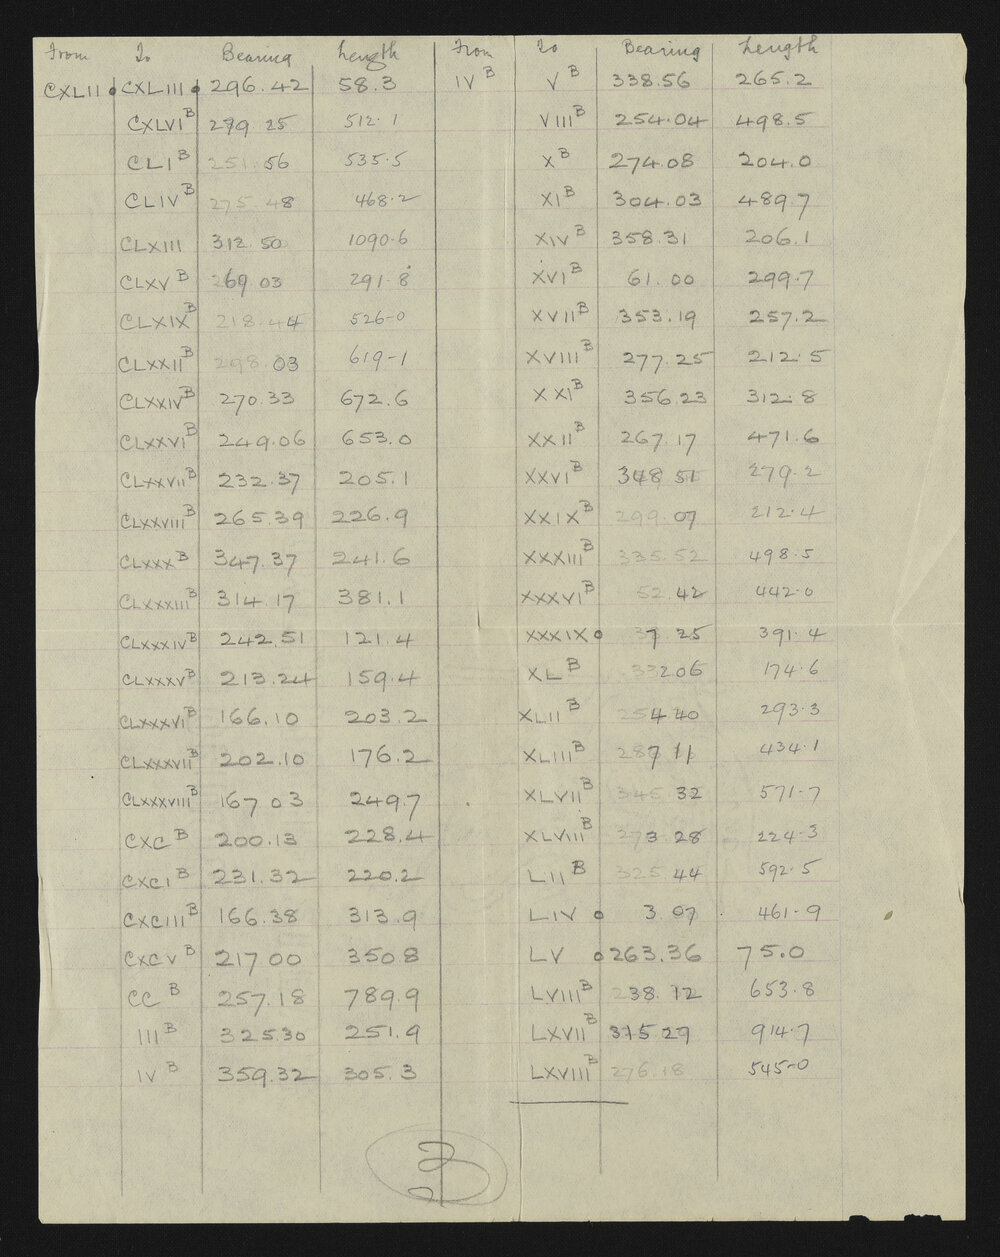 From To Bearing Length From To Bearing Length
CXLII o CXLIII o 296.42 58.3 IV B V B 338.56 265.2
CXLVI B 279 25 512.1 VIII B 254.04 498.5
CLI B 251.56 535.5 X B 274.08 204.0
CLIV B 275.48 468.2 XI B 304.03 489.7
CLXIII 312.50 1090.6 XIV B 358.31 206.1
CLXV B 269.03 291.8 XVI B 61.00 299.7
CLXIX B 218.44 526-0 XVII B 353.19 257.2
CLXXII B 298.03 619-1 XVIII B 277.25 212.5
CLXXIV B 270.33 672.6 XXI B 356.23 312.8
CLXXVI B 249.06 653.0 XXII B 267.17 471.6
CLXXVII B 232.37 205.1 XXVI B 348 51 279.2
CLXXVIII B 265.39 226.9 XXIX B 299.07 212.4
CLXXX B 347.37 241.6 XXXIII B 335.52 498.5
CLXXXIII B 314.17 381.1 XXXVI B 52.42 442.0
CLXXXIV B 242.51 121.4 XXXIX o 37.25 391.4
CLXXXV B 213.24 159.4 XL B 332 06 174.6
CLXXXVI B 166.10 203.2 XLII B 254.40 293.3
CLXXXVII B 202.10 176.2 XLIII B 287 11 434.1
CLXXXVIII B 167 03 249.7 XLVII B 345.32 571-7
CXC B 200.13 228.4 XLVIII B 273.28 224.3
CXCI B 231.32 220.2 LII B 325.44 592.5
CXCIII B 166.38 313.9 LIV o 3.07 461-9
CXCV B 217 00 350.8 LV o 263.36 75.0
CC B 257.18 789.9 LVIII B 238.12 653.8
III B 325.30 251.9 LXVII B 29 914.7
IV B 359.32 305.3 LXVIII B 276.18 545-0